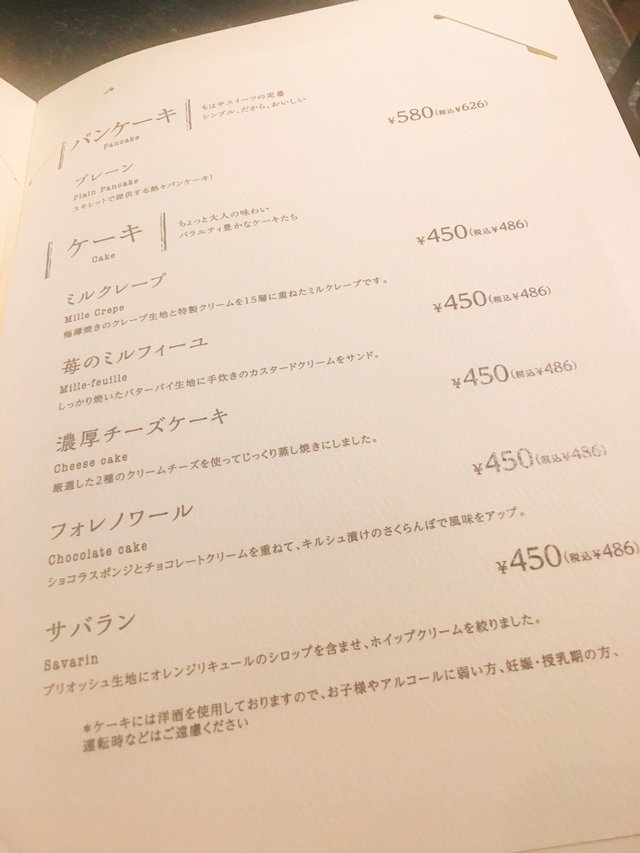 パンケーキ
Pancake
もはやスイーツの定番
シンプル、だから、おいしい
¥580(税込¥626)
プレーン
Plain Pancake
スキレットで提供する熱々パンケーキ!
ケーキ
Cake
ちょっと大人の味わい
バラエティ豊かなケーキたち
¥450(税込¥486)
ミルクレープ
Mille Crepe
極薄焼きのクレープ生地と特製クリームを15層に重ねたミルクレープです。
¥450(税込¥486)
苺のミルフィーユ
Mille-feuille
しっかり焼いたバターパイ生地に手炊きのカスタードクリームをサンド。
¥450(税込¥486)
濃厚チーズケーキ
Cheese cake
厳選した2種のクリームチーズを使ってじっくり蒸し焼きにしました。
¥450(税込¥486)
フォレノワール
Chocolate cake
ショコラスポンジとチョコレートクリームを重ねて、キルシュ漬けのさくらんぼで風味をアップ。
¥450(税込¥486)
サバラン
Savarin
ブリオッシュ生地にオレンジリキュールのシロップを含ませ、ホイップクリームを絞りました。
*ケーキには洋酒を使用しておりますので、お子様やアルコールに弱い方、妊娠・授乳期の方、
運転時などはご遠慮ください